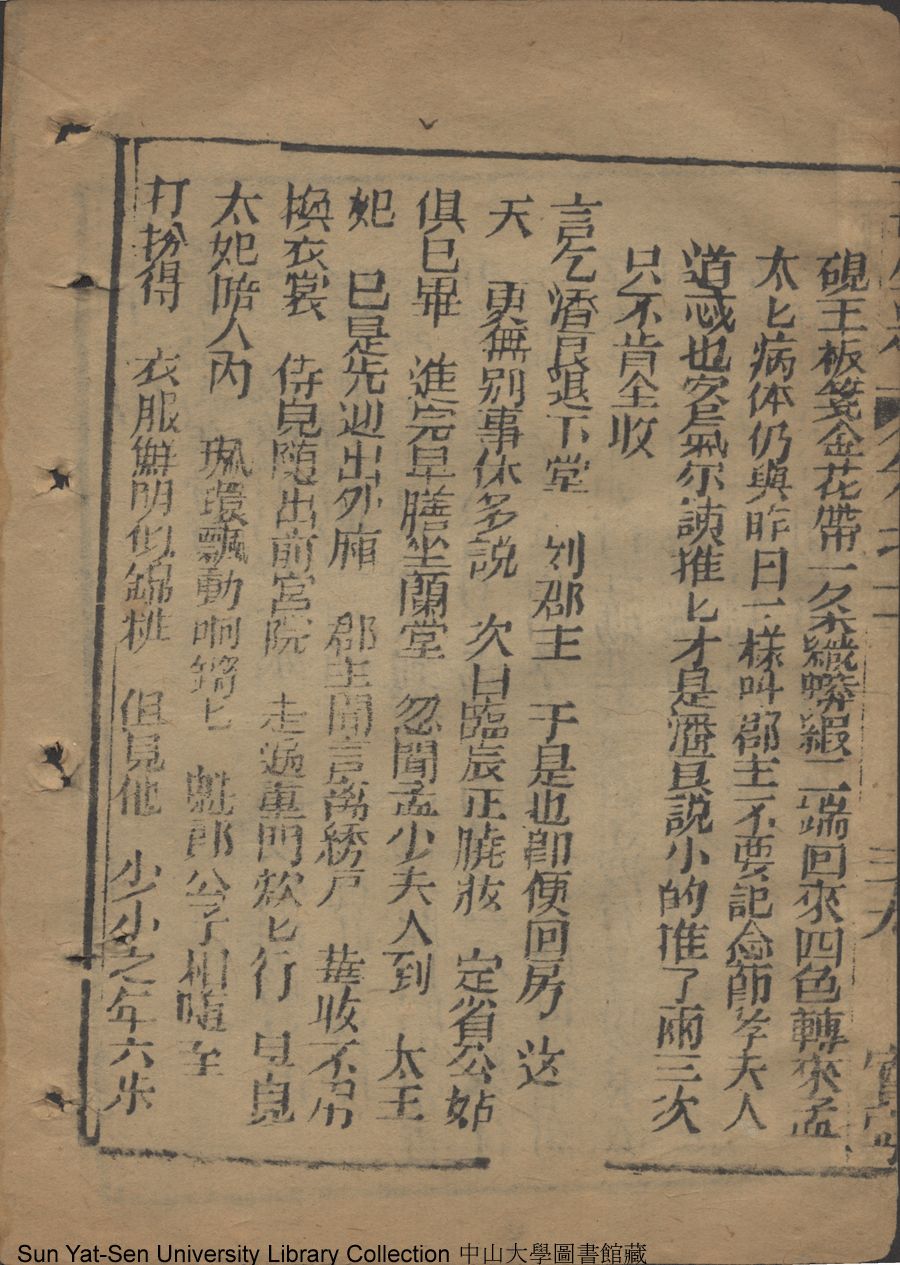 硯王板箋金花帶一条織蟒緞二端回來四色轉來孟
太匕病体仍與昨日一樣叫郡主不要記念節孝夫人
道惑也安烏氣尔該推匕才是潘良説小的推了兩三次
只不肯全收
言乞潘良退下堂 刘郡主 于是也即便回房 这
天 更無別事休多説 次日臨辰正曉妝 定省公姑
俱巳畢 進完早膳坐蘭堂 忽聞孟少夫人到 太王
妃 巳是先迎出外廂 郡主聞言离綉户 華收不另
換衣裳 侍児随出前宮院 走過重門欵匕行 只見
太妃陪人内 珮環飄動响鏘匕 魁郎公子相随至
打扮得 衣服鮮明似錦桃 但見他 少小之年六歩
三九
Sun Yat-Sen University Library Collection 中山大學圖書館藏